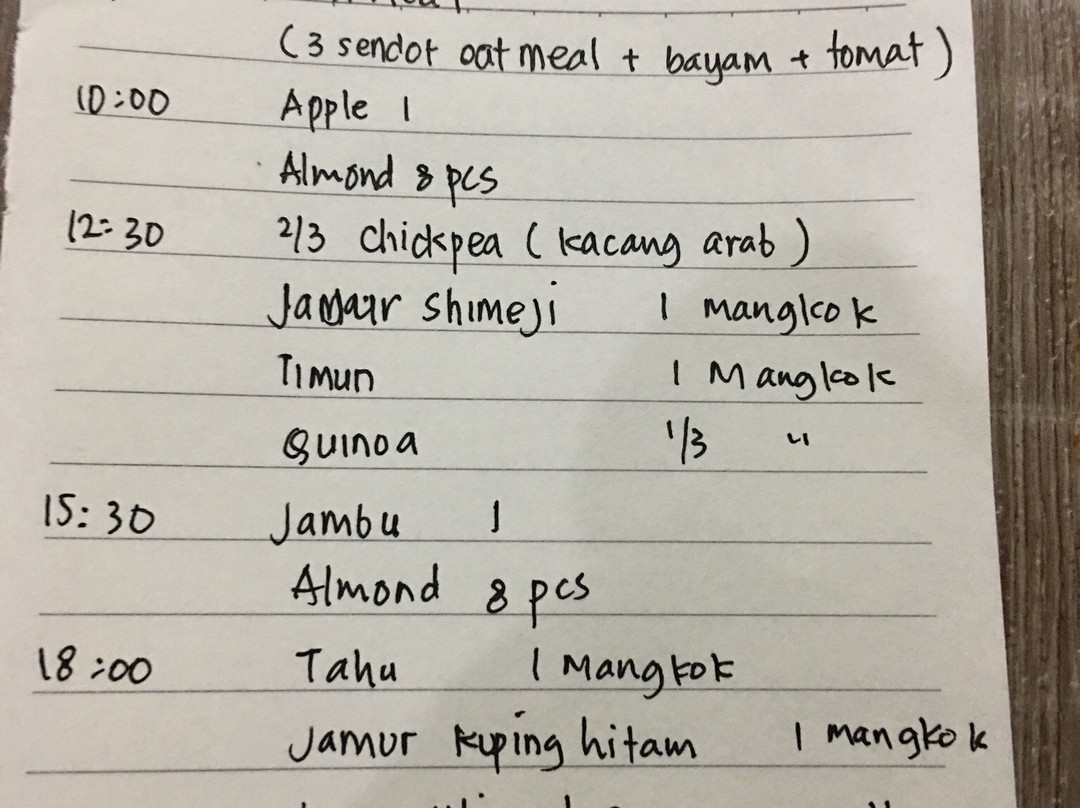 (3 sendot oatmeal + bayam + tomat)
10:00 Apple 1
Almond 8 pcs
12:30 2/3 chickpea (kacang arab)
Jamur shimeji 1 mangkok
Timun 1 Mangkok
Quinoa 1/3 "
15:30 Jambu 1
Almond 8 pcs
18:00 Tahu 1 Mangkok
Jamur kuping hitam 1 mangkok